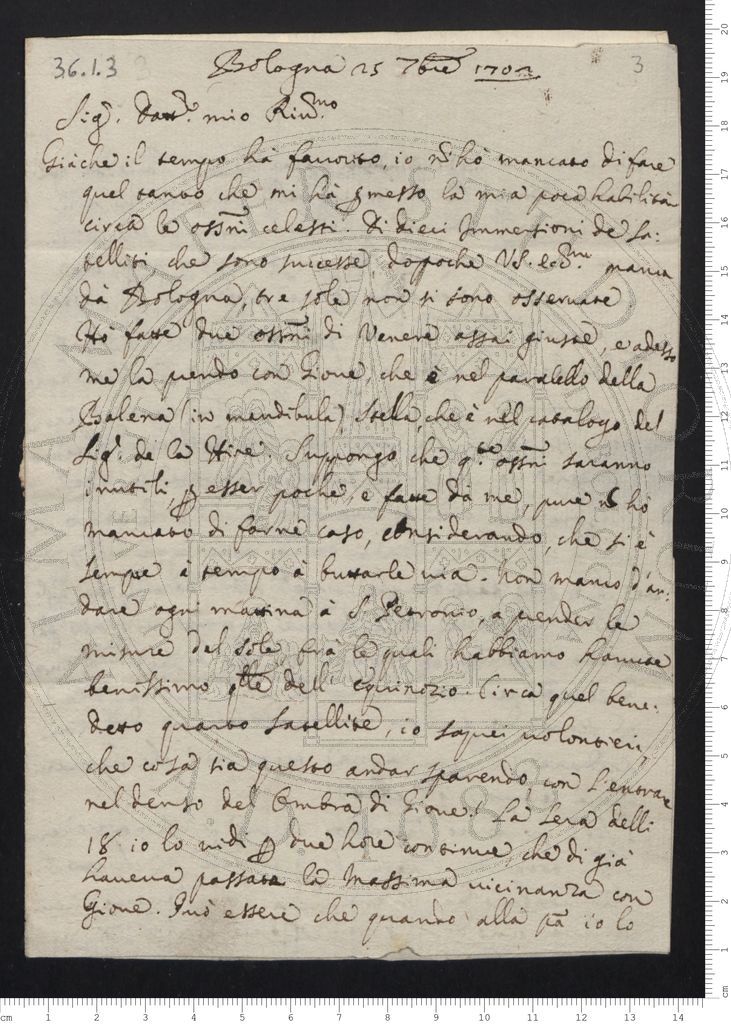 36.1.3
3
Bologna 25 7bre 1702
Sig.r Dott.r mio Riu.mo
Giàche il tempo hà favorito, io nõ hò mancato di fare
quel tanto che mi hà ꝑmesso la mia poca habilità
circa le ossni celesti. Di dieci Immersioni de Sa:
telliti che sono successe, dopoche VS. ecc.ma manca
dà Bologna, tre sole non si sono osservate
Hò fatte due ossni di Venere assai giuste, e adesso
me la prendo con Giove, che è nel paralello della
Balena (in mandibula) Stella, che è nel catalogo del
Sig.r de la Hire. Suppongo che q.te ossni saranno
inutili, ꝑ esser poche, e fatte dà me, pure nõ hò
mancato di farne caso, considerando, che si è
sempre à tempo à buttarle via. Non manco d'an:
dare ogni mattina à S. Petronio, a prender le
misure del Sole frà le quali habbiamo havute
benissimo q̃lle dell' equinozio. Circa quel bene:
detto quarto satellite, io saprei volontieri,
che cosa sia questo andar sparendo, con l'entrare
nel denso del Ombra di Giove! La sera delli
18 io lo vidi ꝑ due hore continue, che di già
haveva passata la Massima vicinanza con
Giove. Può essere che quando alla pã io lo